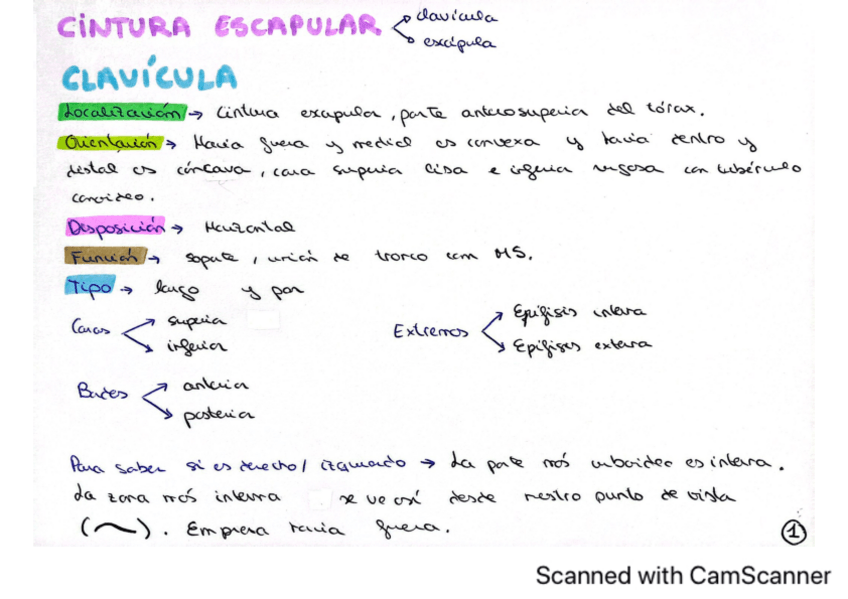 CINTURA ESCAPULAR
clavícula
escápula
CLAVÍCULA
Localización → Cintura escapular, parte anterosuperior del tórax.
Orientación → Hacia fuera y medial es convexa y hacia dentro y
distal es cóncava, cara superior lisa e inferior rugosa con tubérculo
conoideo.
Disposición → Horizontal
Función → soporte, unión de tronco con MS.
Tipo → largo y par
Caras
superior
inferior
Extremos
Epífisis interna
Epífisis externa
Bordes
anterior
posterior
Para saber si es derecho/izquierdo → La parte más cuboidea es interna.
La zona más interna se ve así desde nuestro punto de vista
( ). Empieza hacia fuera.
1
Scanned with CamScanner